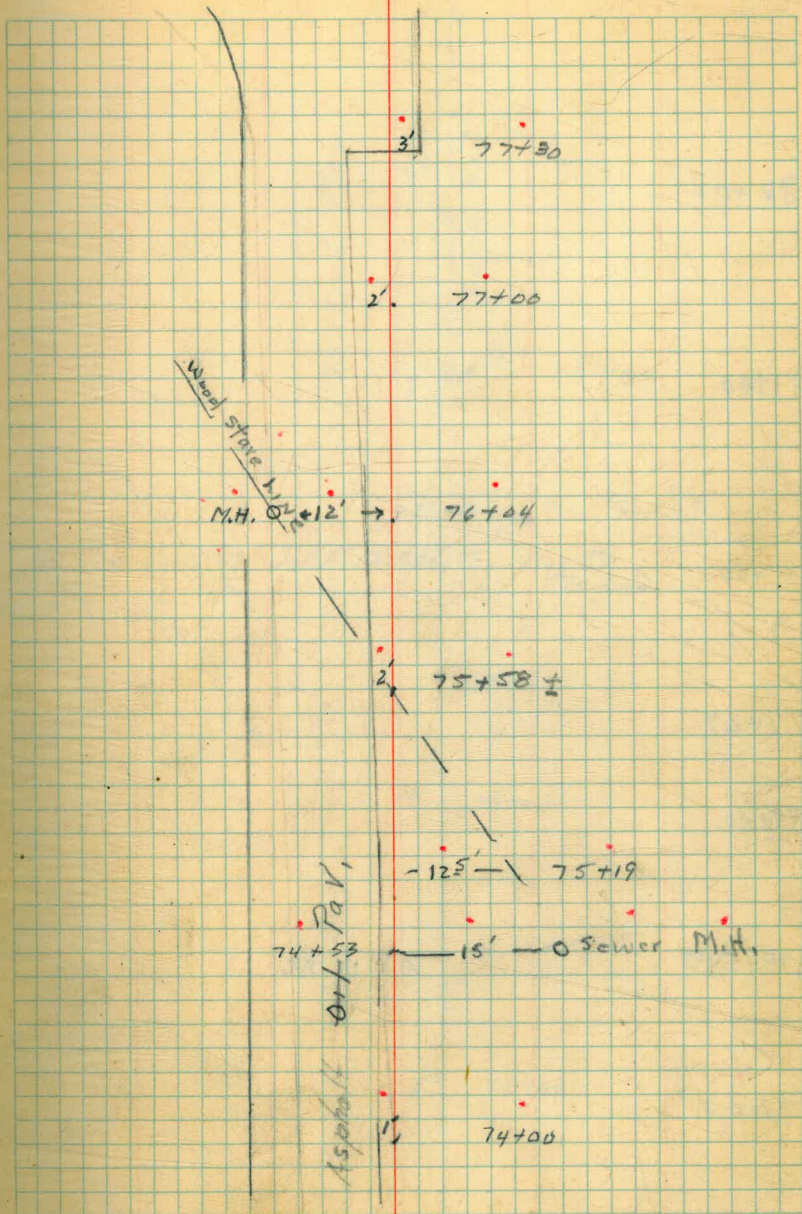 3' 77+30
2' 77+00
Wood stave line
M.H. O ←12' → 76+04
2' 75+58 ±
- 12⁵' — 75+19
74+53 — 15' — O Sewer M.H.
Asphalt Pav.
1' 74+00